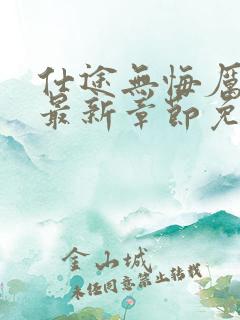 仕途無悔厲
最新章節免
金山城
未經同意禁止轉載